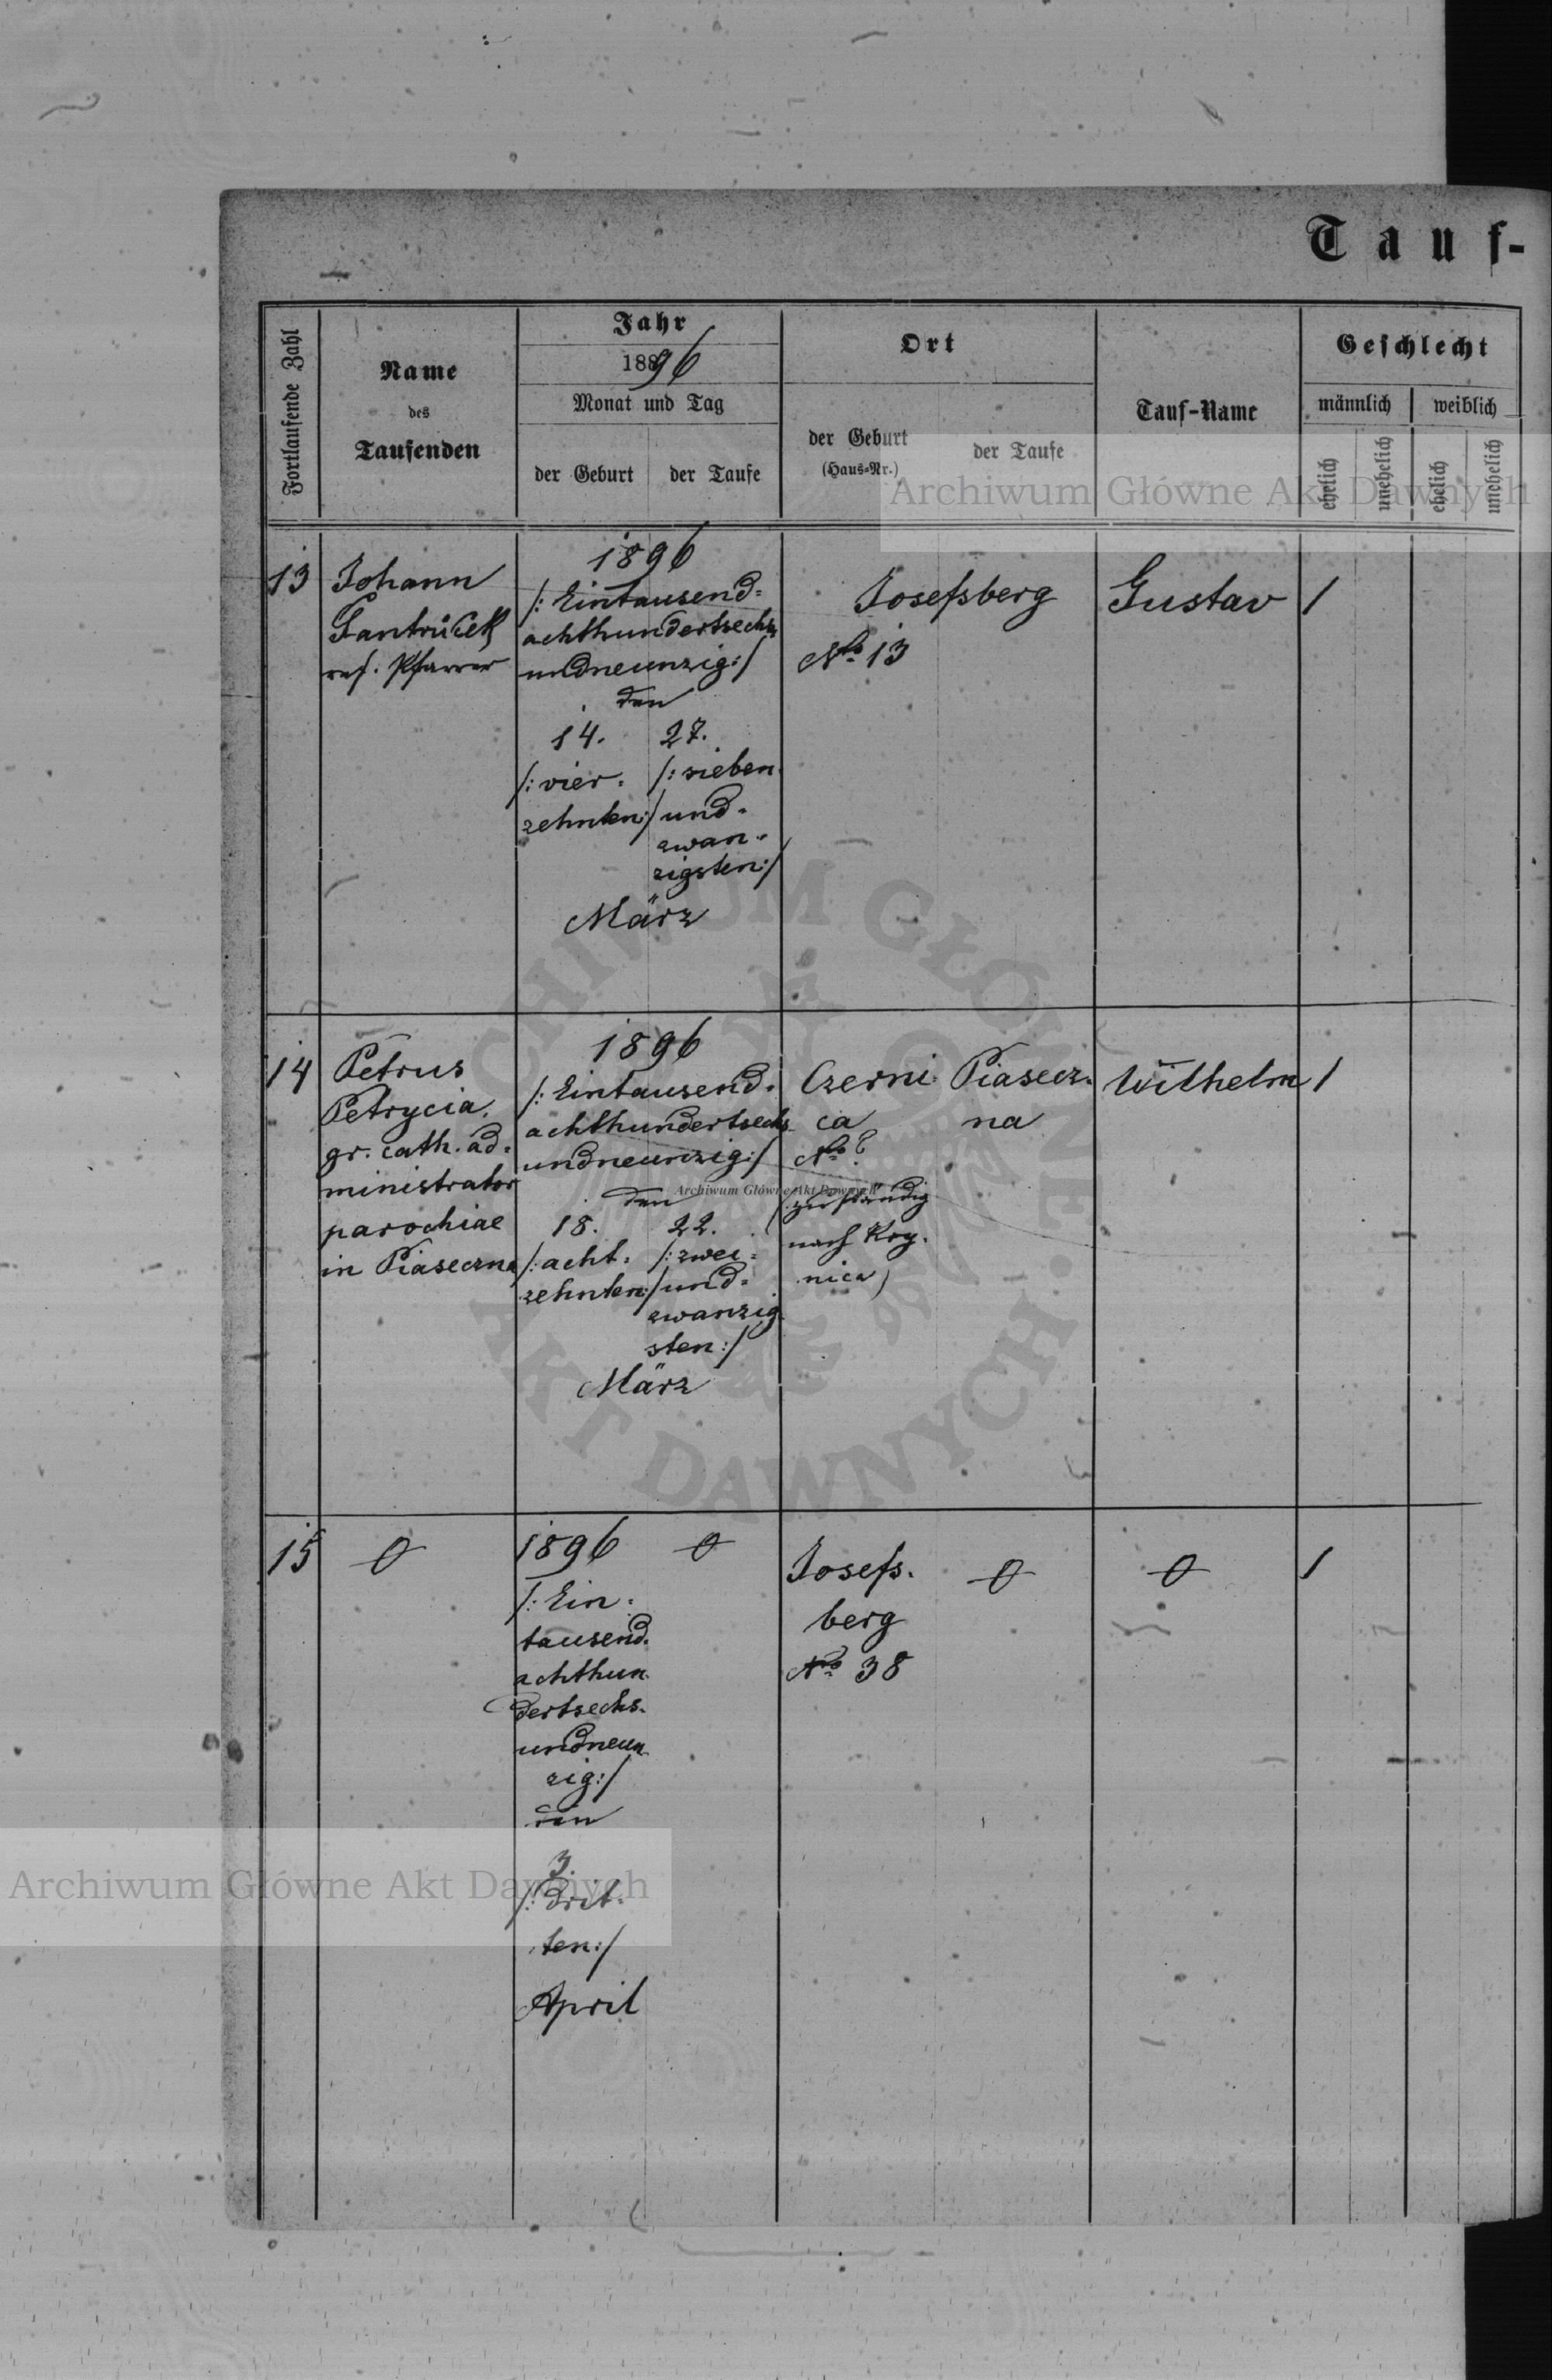 Tauf-
Fortlaufende Zahl
Name
des
Taufenden
Jahr
1896
Monat und Tag
der Geburt
der Taufe
Ort
der Geburt
(Haus-Nr.)
der Taufe
Tauf-Name
Geschlecht
männlich
weiblich
ehelich
unehelich
ehelich
unehelich
Archiwum Główne Akt Dawnych
13
Johann
ref. Pfarrer
1896
/: Eintausend-
achthundertsechs
undneunzig :/
den
14. 27.
/: vier- /: sieben-
zehnten :/ und-
zwan-
zigsten :/
März
Josefsberg
No 13
Gustav
1
14
Petrus
Petrycia,
gr. cath. ad-
ministrator
parochiae
in Piaseczna
1896
/: Eintausend-
achthundertsechs-
undneunzig :/
den
18. 22.
/: acht- /: zwei-
zehnten :/ und-
zwanzig-
sten :/
März
Czerni- Piasecz-
ca na
No ?
(zuständig
nach Kry-
nica)
Wilhelm
1
ARCHIWUM GŁÓWNE
AKT DAWNYCH
Archiwum Główne Akt Dawnych
15
0
1896 0
/: Ein-
tausend-
achthun-
dertsechs-
undneun-
zig :/
den
3.
/: drit-
ten :/
April
Josefs- 0
berg
No 38
0
1
Archiwum Główne Akt Dawnych